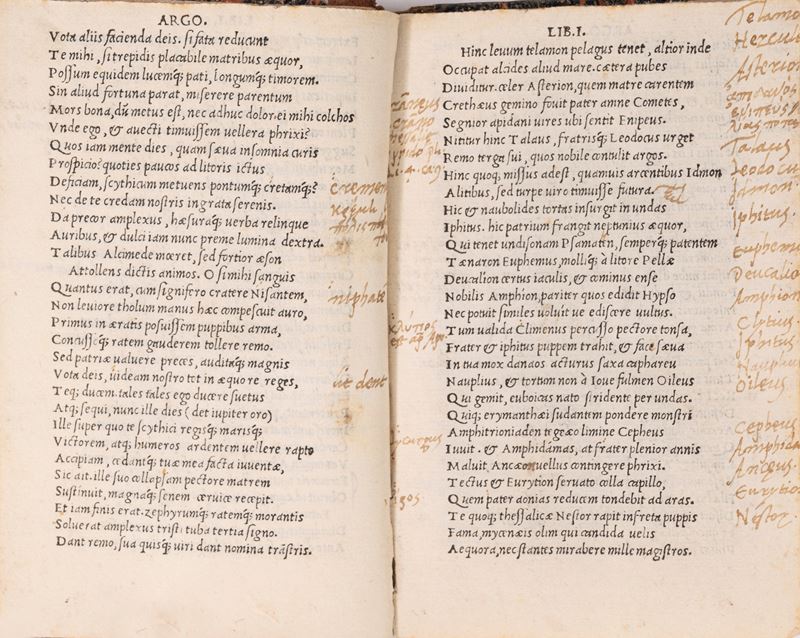 ARGO.
Vota aliis facienda deis. si fata reducunt
Te mihi, si trepidis placabile matribus æquor,
Possum equidem lucemq; pati, longumq; timorem.
Sin aliud fortuna parat, miserere parentum
Mors bona, dũ metus est, nec adhuc dolor. ei mihi colchos
Vnde ego, & auecti timuissem uellera phrixi?
Quos iam mente dies, quam sæua insomnia curis
Prospicio? quoties paucos ad litoris ictus
Deficiam, scythicum metuens pontumq; cretamq;?
Nec de te credam nostris ingrata serenis.
Da precor amplexus, hæsuraq; uerba relinque
Auribus, & dulci iam nunc preme lumina dextra.
Talibus Alcimede mœret, sed fortior æson
Attollens dictis animos. O si mihi sanguis
Quantus erat, cum signifero cratere Nisantem,
Non leuiore tholum manus hæc compescuit auro,
Primus in æratis posuissem puppibus arma,
Concussoq; ratem gauderem tollere remo.
Sed patriæ ualuere preces, auditaq; magnis
Vota deis, uideam nostro tot in æquore reges,
Teq; ducem. tales tales ego ducere suetus
Atq; sequi, nunc ille dies (det iupiter oro)
Ille super quo te scythici regisq; marisq;
Victorem, atq; humeros ardentem uellere rapto
Accipiam, cedantq; tuæ mea facta iuuentæ,
Sic ait. ille suo collapsam pectore matrem
Sustinuit, magnaq; senem ceruice recepit.
Et iam finis erat. zephyrumq; ratemq; morantis
Soluerat amplexus tristi tuba tertia signo.
Dant remo, sua quisq; uiri dant nomina trãstris.
niphate
sit dent
LIB. I.
Hinc leuum telamon pelagus tenet, altior inde
Occupat alcides aliud mare. cætera pubes
Diuiditur. celer Asterion, quem matre carentem
Crethæus gemino fouit pater amne Cometes,
Segnior apidani uires ubi sentit Enipeus.
Nititur hinc Talaus, fratrisq; Leodocus urget
Remo terga sui, quos nobile contulit argos.
Hinc quoq; missus adest, quamuis arcentibus Idmon
Alitibus, sed turpe uiro timuisse futura.
Hic & naubolides tortas insurgit in undas
Iphitus. hic patrium frangit neptunius æquor,
Qui tenet undisonam Psamatũ, semperq; patentem
Tænaron Euphemus, molliq; à litore Pellæ
Deucalion certus iaculis, & cominus ense
Nobilis Amphion, pariter quos edidit Hypso
Nec potuit similes uoluit ue ediscere uultus.
Tum ualida Climenus percusso pectore tonsa,
Frater & iphitus puppem trahit, & face sæua
In tua mox danaos acturus saxa caphareu
Nauplius, & tortum non à Ioue fulmen Oileus
Qui gemit, euboicas nato stridente per undas.
Quiq; erymanthæi sudantem pondere monstri
Amphitrioniaden tegeæo limine Cepheus
Iuuit. & Amphidamas, at frater plenior annis
Maluit, Ancæo uellus contingere phrixi.
Tectus & Eurytion seruato colla capillo,
Quem pater aonias reducem tondebit ad aras.
Te quoq; thessalicæ Nestor rapit in freta puppis
Fama, mycenæis olim qui candida uelis
Aequora, nec stantes mirabere mille magistros.
Telamo
Hercul
Asterion
Talaus
Leodocu
Idmon.
Iphitus.
Euphemu
Deucalio
Amphion
Iphitus.
Nauplius
Oileus.
Cepheus
Amphida
Ancęus.
Eurytio
Nestor.